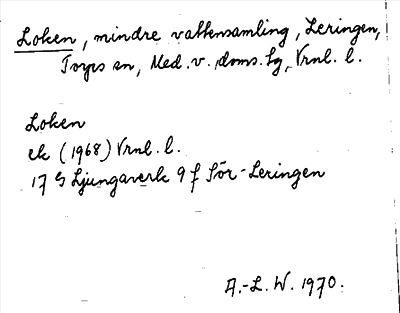 Loken, mindre vattensamling, Leringen,
Torps sn, Med. v. doms. sg, Vrnl. l.
Loken
ek (1968) Vrnl. l.
17 G Ljungaverk 9 f Sör-Leringen
A.-L. W. 1970.